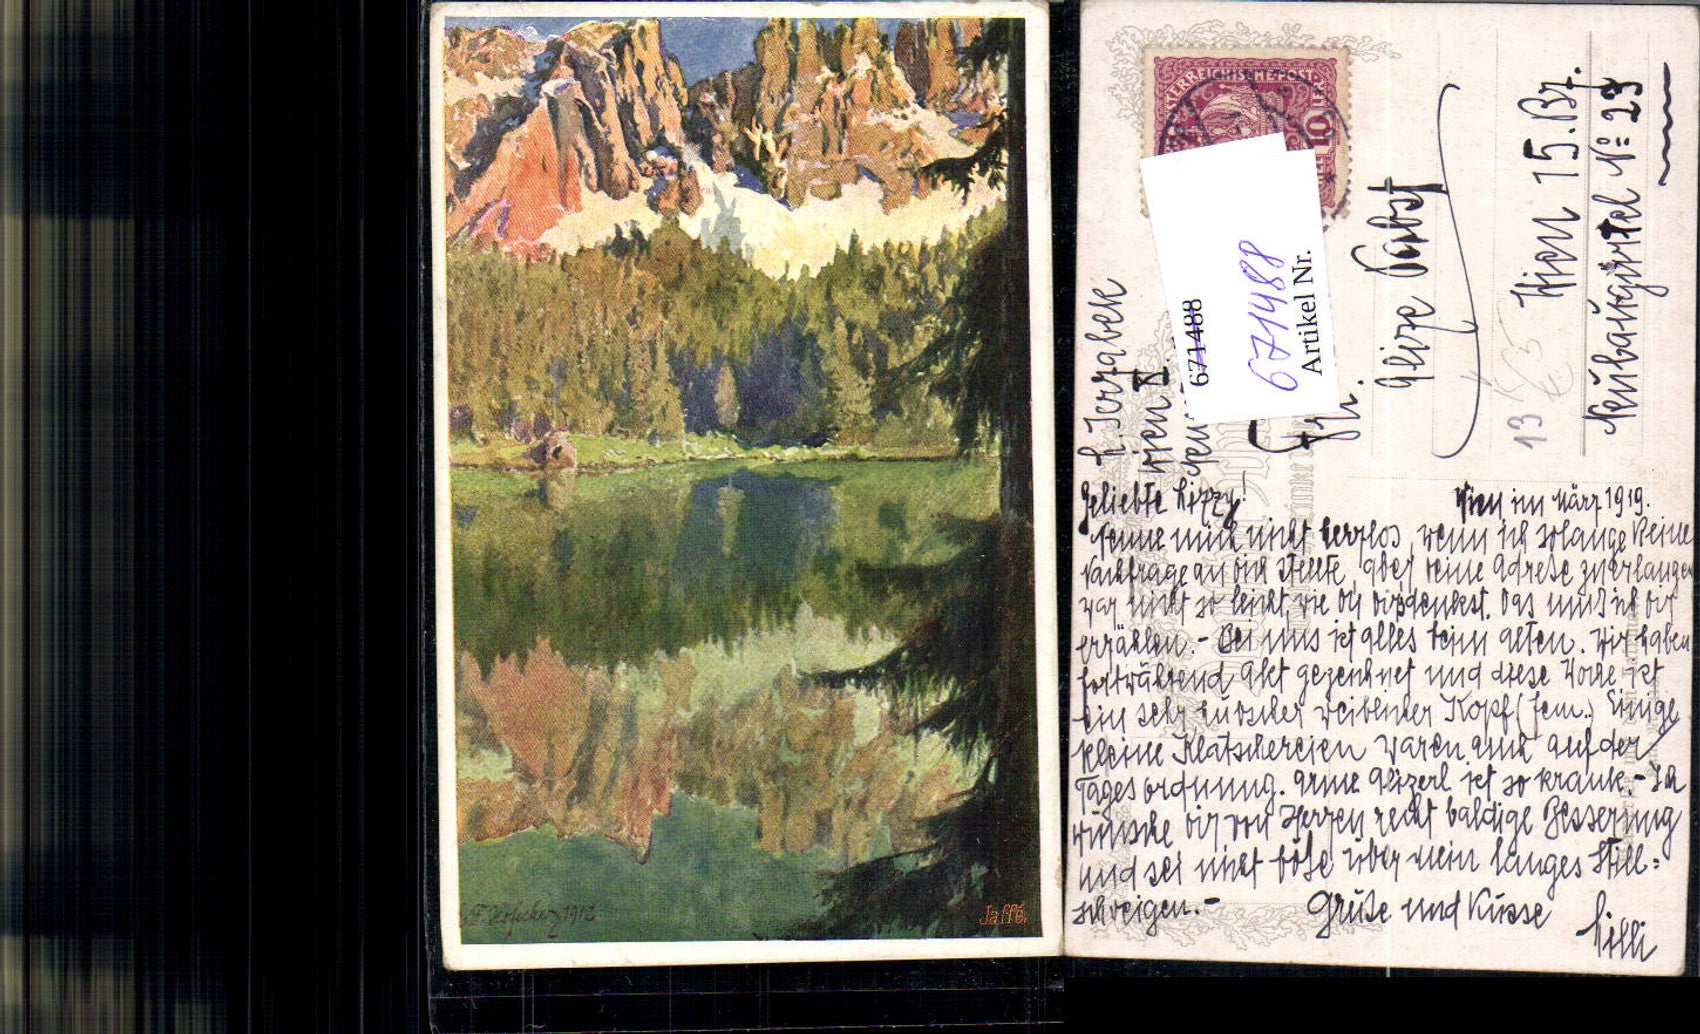 1913
Jaffé.
ÖSTERREICHISCHE POST
10
671488
671488
Artikel Nr.
L. Jerzabek
Wien X.
Frl.
Lizze Pabst
Wien 15. Bz.
Neubaugürtel No: 23
13
Geliebte Lizzy! Wien im März 1919.
Nenne mich nicht herzlos, wenn ich solange keine
Nachfrage an dich stellte, aber deine Adresse zu erlangen
war nicht so leicht, wie du dir's denkst. Das muß ich dir
erzählen. - Bei uns ist alles beim alten. Wir haben
fortwährend Akt gezeichnet und diese Woche ist
ein sehr hübscher weiblicher Kopf (fem.) Einige
kleine Klatschereien waren auch auf der
Tagesordnung. Arme Lizerl ist so krank. - Ich
wünsche dir von Herzen recht baldige Besserung
und sei nicht böse über mein langes Still-
schweigen. - Grüße und Küsse
Lilli